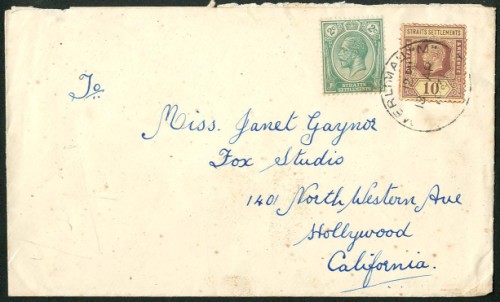 STRAITS SETTLEMENTS
STRAITS
SETTLEMENTS
10
MERLIMAU
To
Miss. Janet Gaynor
Fox Studio
1401 North Western Ave
Hollywood
California.